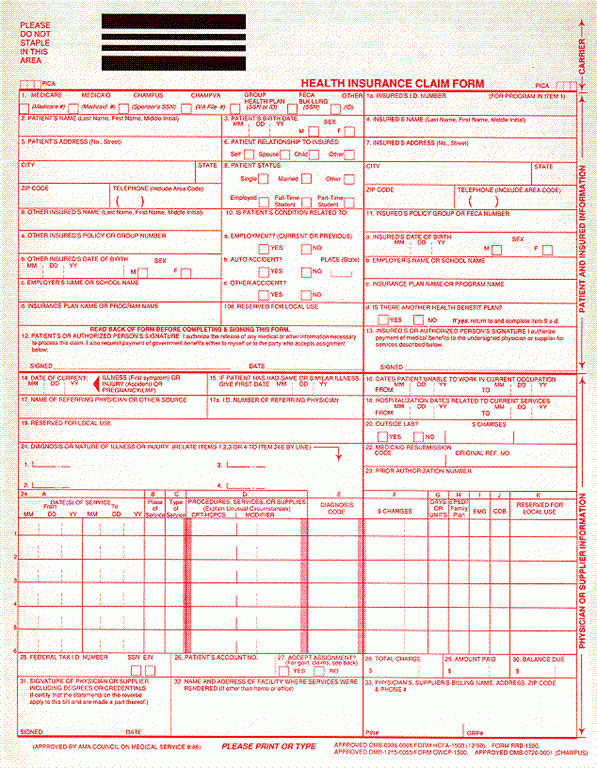 PLEASE
DO NOT
STAPLE
IN THIS
AREA
CARRIER
PICA
HEALTH INSURANCE CLAIM FORM
PICA
1. MEDICARE MEDICAID CHAMPUS CHAMPVA GROUP HEALTH PLAN FECA BLK LUNG OTHER
(Medicare #) (Medicaid #) (Sponsor's SSN) (VA File #) (SSN or ID) (SSN) (ID)
1a. INSURED'S I.D. NUMBER (FOR PROGRAM IN ITEM 1)
2. PATIENT'S NAME (Last Name, First Name, Middle Initial)
3. PATIENT'S BIRTH DATE SEX
MM DD YY M F
4. INSURED'S NAME (Last Name, First Name, Middle Initial)
5. PATIENT'S ADDRESS (No., Street)
6. PATIENT RELATIONSHIP TO INSURED
Self Spouse Child Other
7. INSURED'S ADDRESS (No., Street)
CITY STATE
8. PATIENT STATUS
Single Married Other
CITY STATE
ZIP CODE TELEPHONE (Include Area Code)
( )
Employed Full-Time Student Part-Time Student
ZIP CODE TELEPHONE (INCLUDE AREA CODE)
( )
9. OTHER INSURED'S NAME (Last Name, First Name, Middle Initial)
10. IS PATIENT'S CONDITION RELATED TO:
11. INSURED'S POLICY GROUP OR FECA NUMBER
a. OTHER INSURED'S POLICY OR GROUP NUMBER
a. EMPLOYMENT? (CURRENT OR PREVIOUS)
YES NO
a. INSURED'S DATE OF BIRTH SEX
MM DD YY M F
b. OTHER INSURED'S DATE OF BIRTH SEX
MM DD YY M F
b. AUTO ACCIDENT? PLACE (State)
YES NO
b. EMPLOYER'S NAME OR SCHOOL NAME
c. EMPLOYER'S NAME OR SCHOOL NAME
c. OTHER ACCIDENT?
YES NO
c. INSURANCE PLAN NAME OR PROGRAM NAME
d. INSURANCE PLAN NAME OR PROGRAM NAME
10d. RESERVED FOR LOCAL USE
d. IS THERE ANOTHER HEALTH BENEFIT PLAN?
YES NO If yes, return to and complete item 9 a-d.
READ BACK OF FORM BEFORE COMPLETING & SIGNING THIS FORM.
12. PATIENT'S OR AUTHORIZED PERSON'S SIGNATURE I authorize the release of any medical or other information necessary
to process this claim. I also request payment of government benefits either to myself or to the party who accepts assignment
below.
SIGNED DATE
13. INSURED'S OR AUTHORIZED PERSON'S SIGNATURE I authorize
payment of medical benefits to the undersigned physician or supplier for
services described below.
SIGNED
PATIENT AND INSURED INFORMATION
14. DATE OF CURRENT:
MM DD YY
ILLNESS (First symptom) OR
INJURY (Accident) OR
PREGNANCY(LMP)
15. IF PATIENT HAS HAD SAME OR SIMILAR ILLNESS.
GIVE FIRST DATE MM DD YY
16. DATES PATIENT UNABLE TO WORK IN CURRENT OCCUPATION
MM DD YY MM DD YY
FROM TO
17. NAME OF REFERRING PHYSICIAN OR OTHER SOURCE
17a. I.D. NUMBER OF REFERRING PHYSICIAN
18. HOSPITALIZATION DATES RELATED TO CURRENT SERVICES
MM DD YY MM DD YY
FROM TO
19. RESERVED FOR LOCAL USE
20. OUTSIDE LAB? $ CHARGES
YES NO
21. DIAGNOSIS OR NATURE OF ILLNESS OR INJURY. (RELATE ITEMS 1,2,3 OR 4 TO ITEM 24E BY LINE)
1. 3.
2. 4.
22. MEDICAID RESUBMISSION
CODE ORIGINAL REF. NO.
23. PRIOR AUTHORIZATION NUMBER
24. A B C D E F G H I J K
DATE(S) OF SERVICE
From To
MM DD YY MM DD YY
Place of Service
Type of Service
PROCEDURES, SERVICES, OR SUPPLIES
(Explain Unusual Circumstances)
CPT/HCPCS MODIFIER
DIAGNOSIS CODE
$ CHARGES
DAYS OR UNITS
EPSDT Family Plan
EMG
COB
RESERVED FOR LOCAL USE
1
2
3
4
5
6
25. FEDERAL TAX I.D. NUMBER SSN EIN
26. PATIENT'S ACCOUNT NO.
27. ACCEPT ASSIGNMENT?
(For govt. claims, see back)
YES NO
28. TOTAL CHARGE
$
29. AMOUNT PAID
$
30. BALANCE DUE
$
31. SIGNATURE OF PHYSICIAN OR SUPPLIER
INCLUDING DEGREES OR CREDENTIALS
(I certify that the statements on the reverse
apply to this bill and are made a part thereof.)
SIGNED DATE
32. NAME AND ADDRESS OF FACILITY WHERE SERVICES WERE
RENDERED (If other than home or office)
33. PHYSICIAN'S, SUPPLIER'S BILLING NAME, ADDRESS, ZIP CODE
& PHONE #
PIN# GRP#
PHYSICIAN OR SUPPLIER INFORMATION
(APPROVED BY AMA COUNCIL ON MEDICAL SERVICE 8/88)
PLEASE PRINT OR TYPE
APPROVED OMB-0938-0008 FORM HCFA-1500 (12-90), FORM RRB-1500,
APPROVED OMB-1215-0055 FORM OWCP-1500, APPROVED OMB-0720-0001 (CHAMPUS)